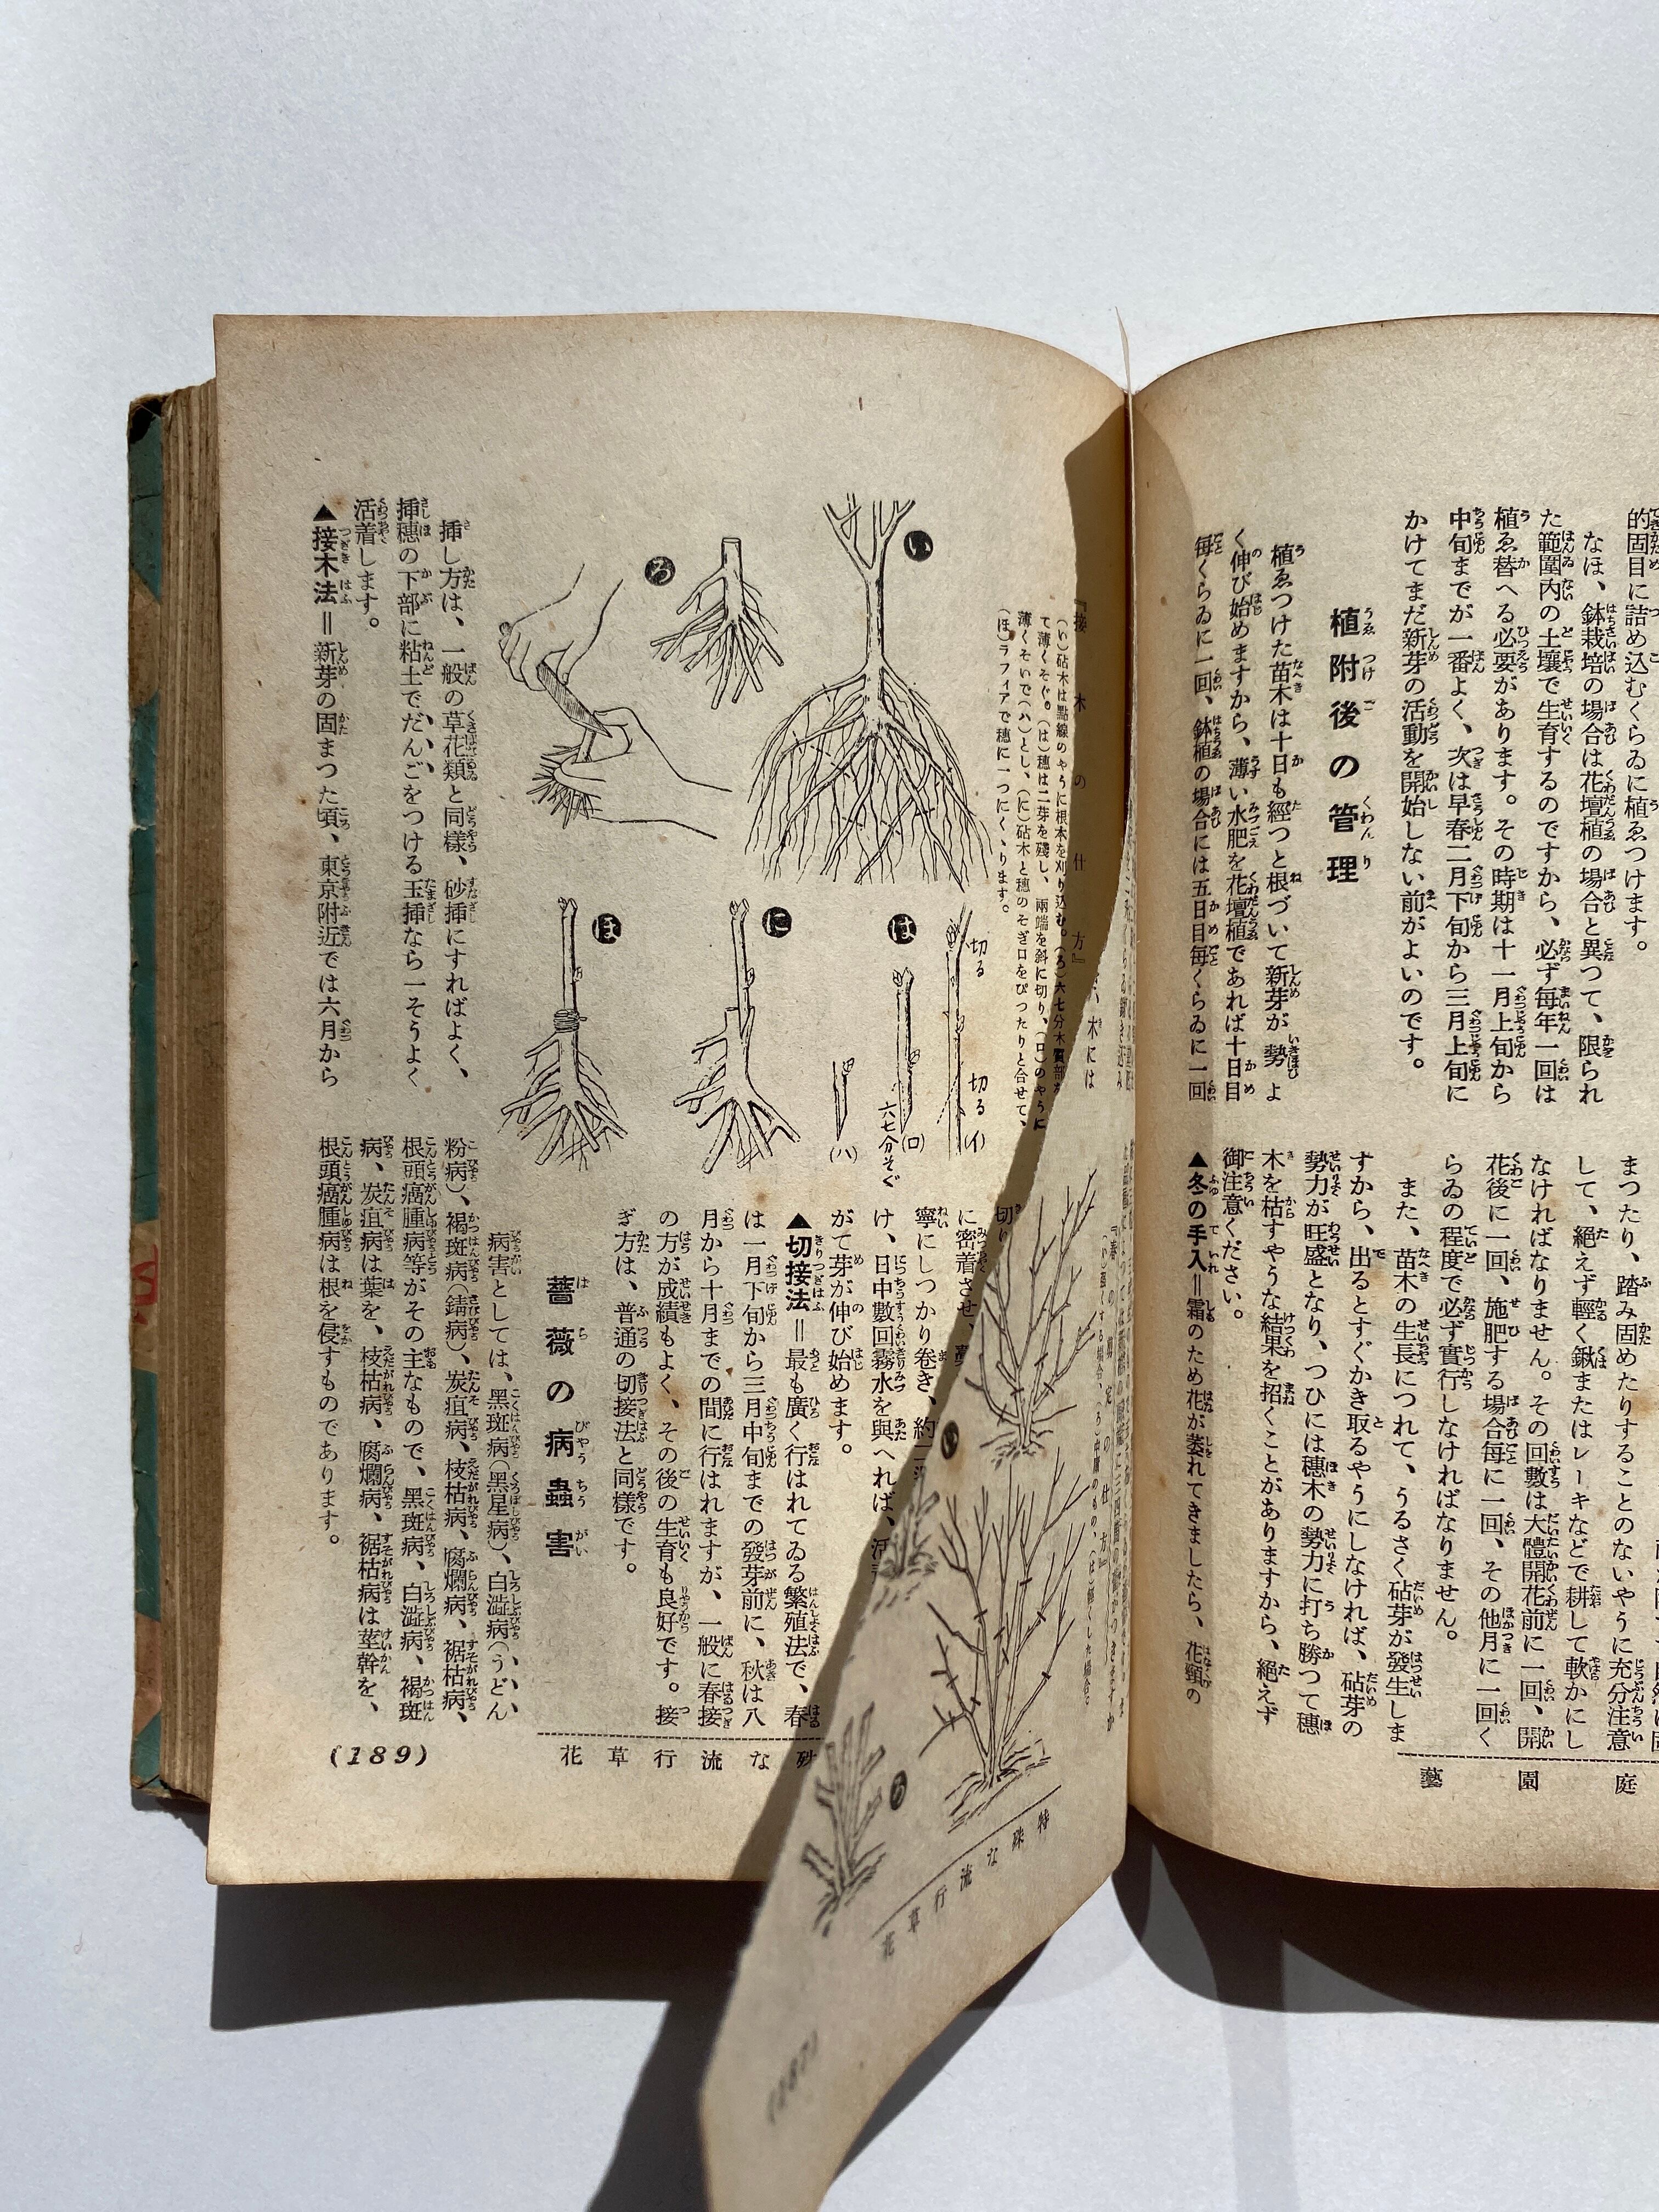 的固目に詰め込むくらゐに植ゑつけます。
なほ、鉢栽培の場合は花壇植の場合と異つて、限られ
た範圍內の土壤で生育するのですから、必ず每年一回は
植ゑ替へる必要があります。その時期は十一月上旬から
中旬までが一番よく、次は早春二月下旬から三月上旬に
かけてまだ新芽の活動を開始しない前がよいのです。
植附後の管理
植ゑつけた苗木は十日も經つと根づいて新芽が勢よ
く伸び始めますから、薄い水肥を花壇植であれば十日目
每くらゐに一回、鉢植の場合には五日目每くらゐに一回
まつたり、踏み固めたりすることのないやうに充分注意
して、絕えず輕く鍬またはレーキなどで耕して軟かにし
なければなりません。その回數は大體開花前に一回、開
花後に一回、施肥する場合每に一回、その他月に一回く
らゐの程度で必ず實行しなければなりません。
また、苗木の生長につれて、うるさく砧芽が發生しま
すから、出るとすぐかき取るやうにしなければ、砧芽の
勢力が旺盛となり、つひには穗木の勢力に打ち勝つて穗
木を枯すやうな結果を招くことがありますから、絕えず
御注意ください。
▲冬の手入＝霜のため花が萎れてきましたら、花頸の
庭園藝
木には
特殊な流行草花
い
ろ
『接木の仕方』
(い)砧木は點線のやうに根本を刈り込む。(ろ)六七分木質部を
て薄くそぐ。(は)穗は二芽を殘し、兩端を斜に切り、(ロ)のやうに
薄くそいで(ハ)とし、(に)砧木と穗のそぎ口をぴつたりと合せて、
(ほ)ラフィアで穗に一つにくゝります。
い
ろ
は
に
ほ
切る
切る
(イ)
(ロ)
六七分そぐ
(ハ)
挿し方は、一般の草花類と同樣、砂挿にすればよく、
挿穗の下部に粘土でだんごをつける玉挿なら一そうよく
活着します。
▲接木法＝新芽の固まつた頃、東京附近では六月から
切り
に密着させ、
寧にしつかり卷き、約
け、日中數回霧水を與へれば、活
がて芽が伸び始めます。
▲切接法＝最も廣く行はれてゐる繁殖法で、春
は一月下旬から三月中旬までの發芽前に、秋は八
月から十月までの間に行はれますが、一般に春接
の方が成績もよく、その後の生育も良好です。接
ぎ方は、普通の切接法と同樣です。
薔薇の病蟲害
病害としては、黑斑病(黑星病)、白澁病(うどん
粉病)、褐斑病(錆病)、炭疽病、枝枯病、腐爛病、裾枯病、
根頭癌腫病等がその主なもので、黑斑病、白澁病、褐斑
病、炭疽病は葉を、枝枯病、腐爛病、裾枯病は莖幹を、
根頭癌腫病は根を侵すものであります。
な流行草花
(189)
(187)